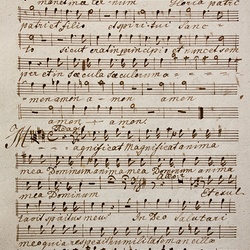 in aeternum Gloria patri
patri et filio et spiritui Sanc
to sicut erat in principio et nunc et sem
per et in saecula saeculorum a
men amen a men amen
amen amen.
Magnificat magnificat anima
mea Dominum anima mea Dominum anima
mea Dominum Et exsul
tavit spiritus meus In Deo Salutari
meo quia respexit humilitatem ancillae